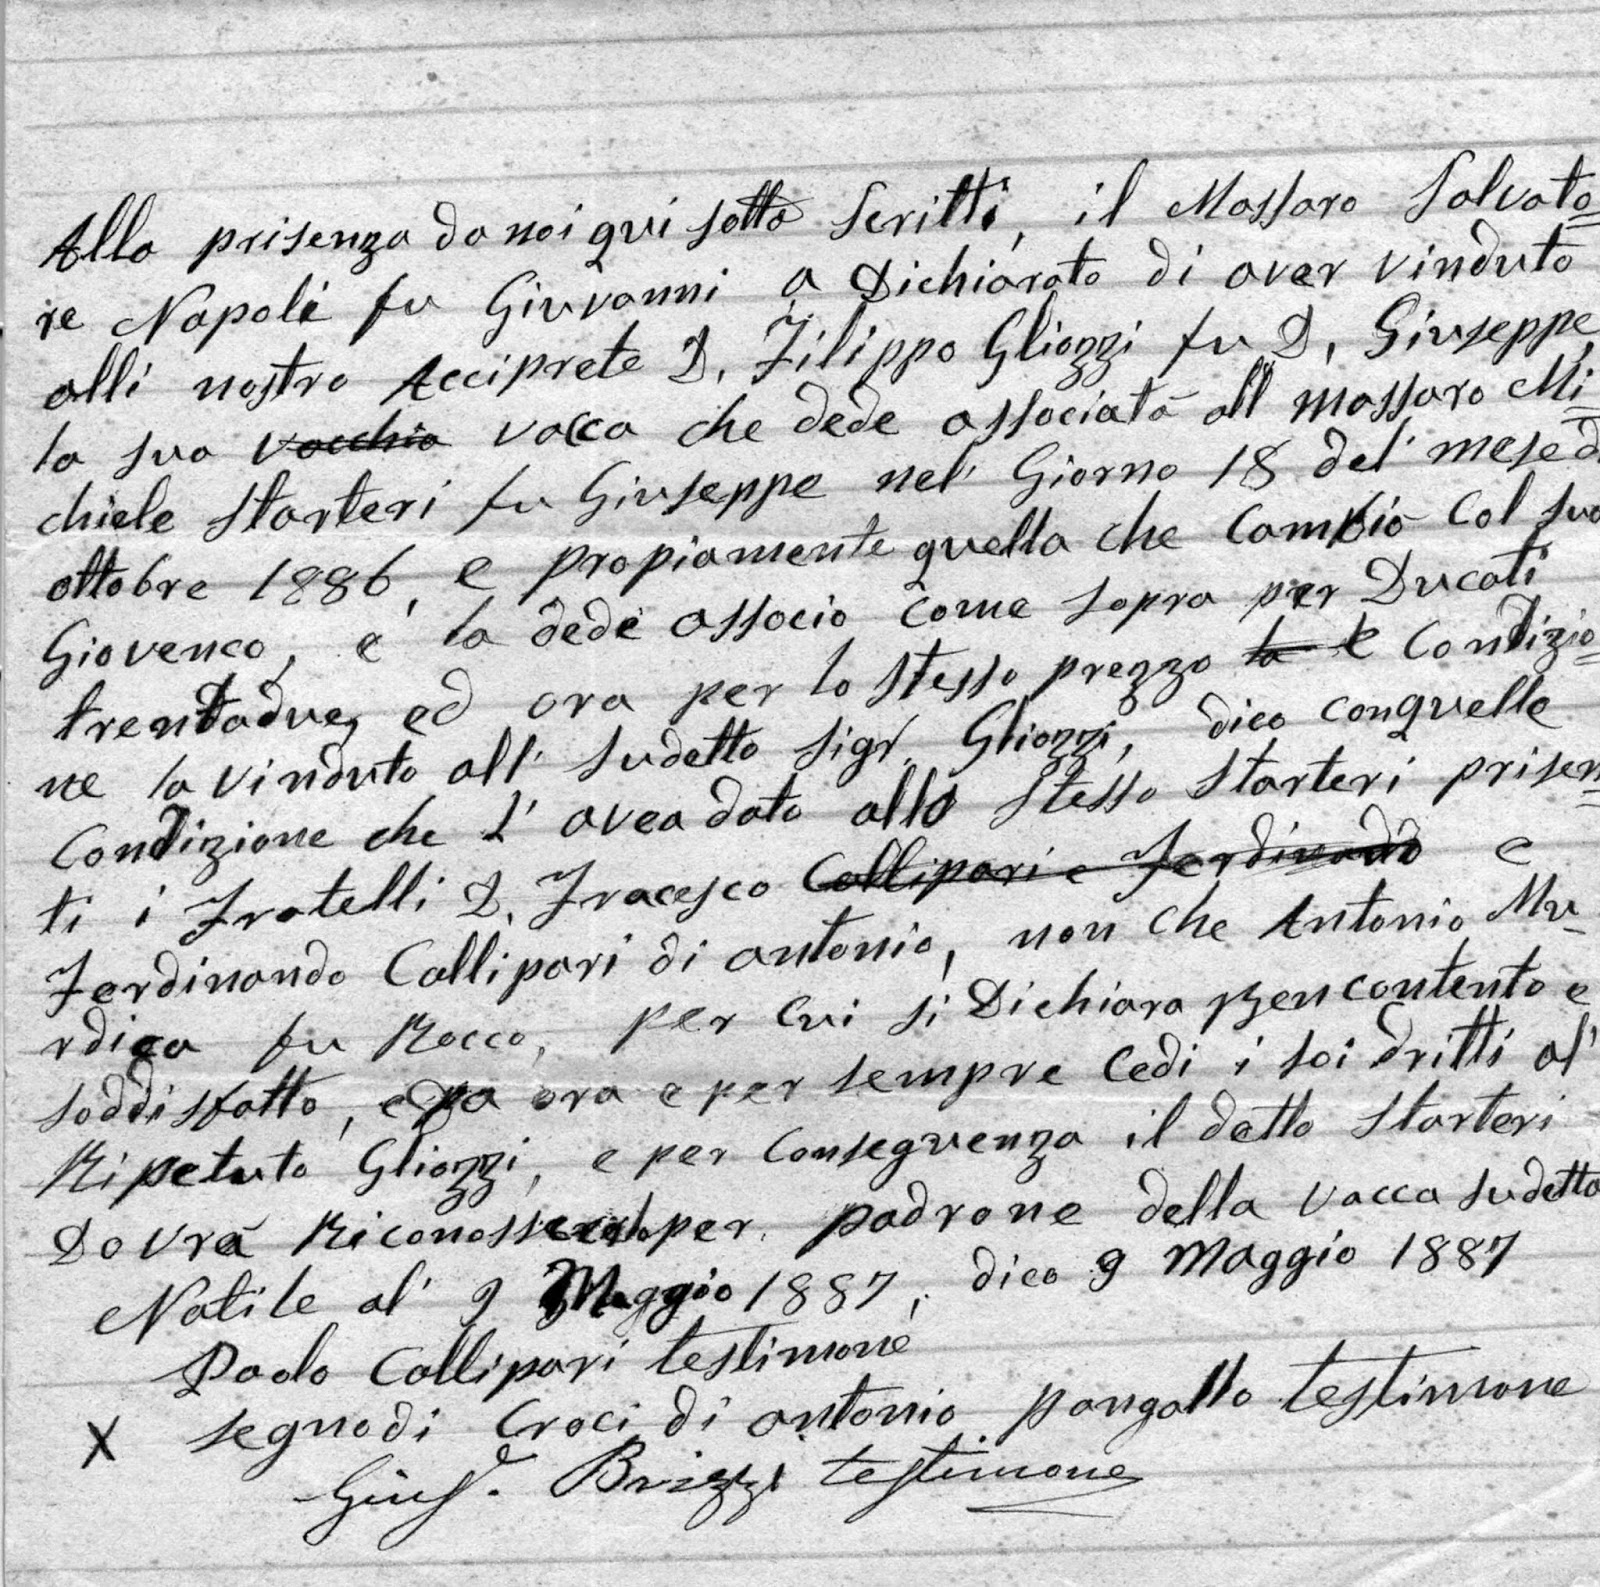 Alla prisenza da noi qui sotto Scritti, il Massaro Salvato=
re Napoli fu Giuvanni a Dichiarato di aver vinduto
alli nostro Acciprete D. Filippo Gliozzi fu D, Giuseppe,
la sua vacchia vacca che dede associatà all massaro Mi=
chiele Starteri fu Giuseppe nel' Giorno 18 del' mese d
ottobre 1886, e propiamente quella che Cambiò Col suo
Giovenco, e' la dede associo come sopra per Ducati
trentadue, ed ora per lo stesso prezzo la e Condizio=
ne la vinduto all' sudetto sigr. Gliozzi, dico conquelle
Condizione che L' avea dato allo stesso Starteri prisen=
ti i Fratelli D. Fracesco Callipari e Ferdinando e
Ferdinando Callipari di antonio, non che Antonio Mu-
rdica fu Rocco, per cui si Dichiara Ben contento e
soddisfatto, e da ora e per sempre Cedi i soi dritti al'
Ripetuto Gliozzi, e per Conseguenza il detto Starteri
Dovrà Riconosserlo per padrone della vacca sudetta
Natile al' 9 Maggio 1887, dico 9 Maggio 1887
Paolo Callipari testimone
X segno di Croci di antonio pangallo testimone
Gius. Brizzi testimone